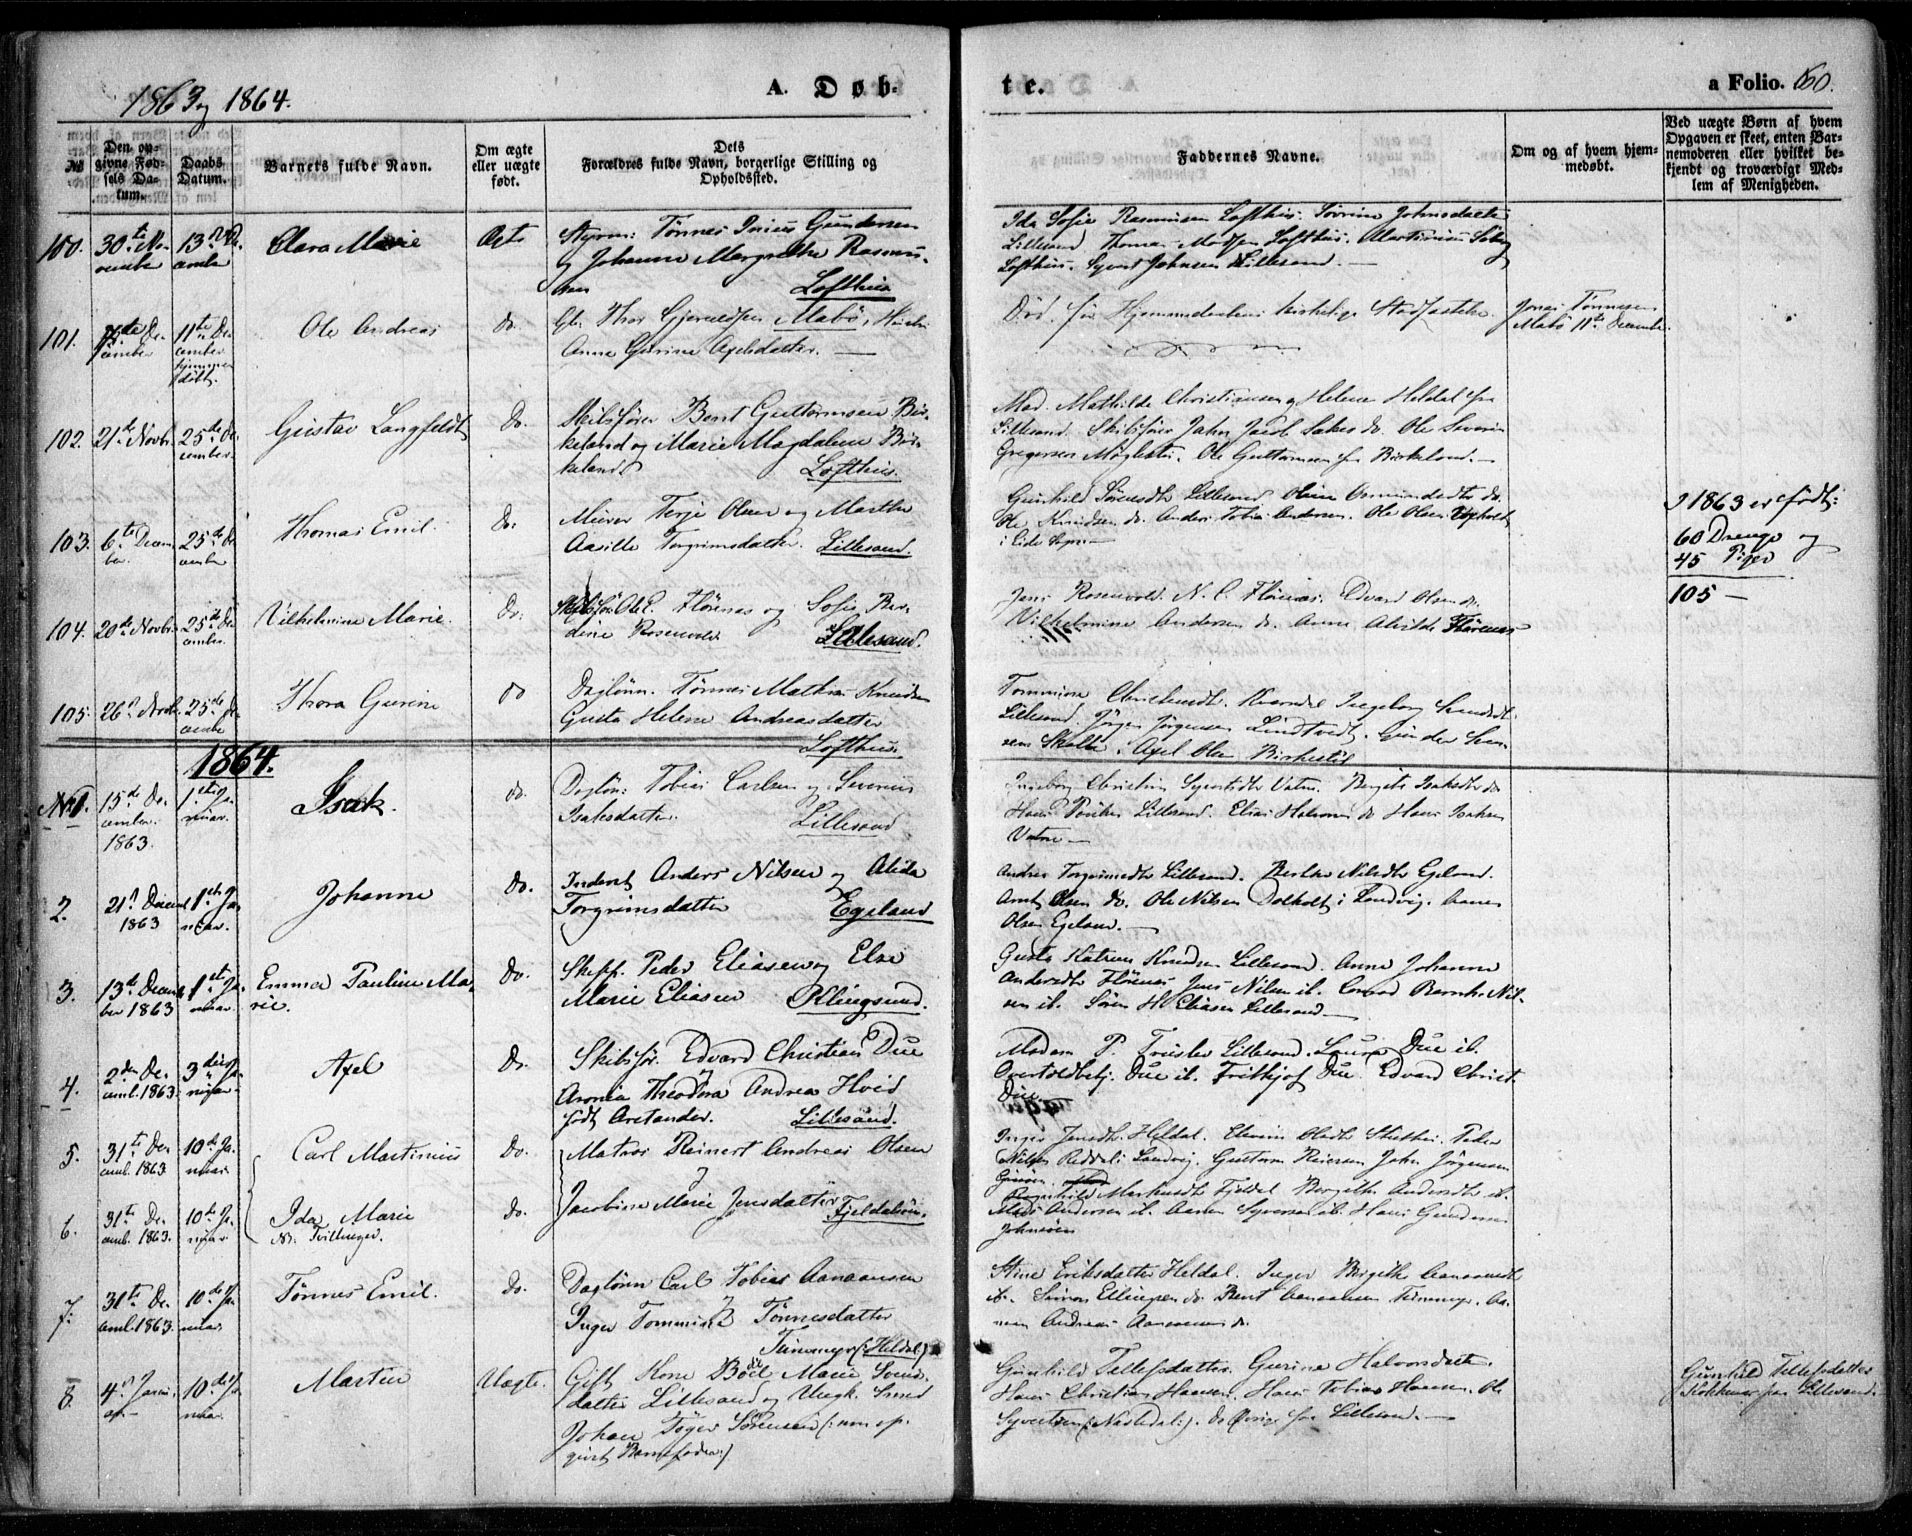 1863 og 1864.
A. Døb-
te.
a Folio. 60.
№
Den op-
givne Fød-
sels Da-
tum.
Daabs
Datum.
Barnets fulde Navn.
Om ægte
eller uægte
født.
Dets
Forældres fulde Navn, borgerlige Stilling og
Opholdssted.
Faddernes Navne.
Om og af hvem hjem-
medøbt.
Ved uægte Børn af hvem
Opgaven er skeet, enten Bar-
nemoderen eller hvilket be-
kjendt og troværdigt Med-
lem af Menigheden.
100. 30te No-
vember
13de De-
cember
Clara Marie
Ægte
Styrm: Tønnes Gundersen
og Johanne Margrethe Rasmu-
sen Lofthus
Ida Sofie Rasmusen Lofthus. Sørine Johnsdatter
Lillesand Thomas Madsen Lofthus. Martinius
Lofthus. Syvert Johnsen Lillesand. —
101. De-
cember
11te De-
cember
hjemme
døbt.
Ole Andreas
do.
Thor Gjeruldsen Mabø,
Anne Gurine Axelsdatter. —
Død før Hjemmedaabens kirkelige Stadfæstelse
Jens Tønnesen
Mabø 11te December
102. 21de Novbr.
25de De-
cember.
Gustav Langfeldt
Do.
Skibsfører Bent Guttormsen Bir-
keland og Marie Magdalene Bir-
keland. Lofthus.
Mad. Mathilde Christiansen og Helene Heldal fra
Lillesand. Skibsfører Jahn Jacob do. Ole Severin
Gregersen Møglestu. Ole Guttormsen fra Birkeland. —
103. 6te Decem-
ber.
25de De-
cember
Thomas Emil.
Do.
Murer Terje Olsen og Marthe
Aasille Torgrimsdatter. Lillesand.
Gunhild Sørensdtr Lillesand Oline Osmundsdtr do.
Ole Knudsen do. Anders Tobias Andersen. Ole Olsen
i Eide Sogn —
I 1863 er født:
60 Drenge og
45 Piger
105 —
104. 20de Novbr.
25de De-
cember.
Vilhelmine Marie.
Do.
Skibsfør. Ole C. Flørenæs og Sofie Ber-
dine Rosenvold Lillesand.
Jens Rosenvold. N. C. Flørenæs. Edvard Olsen do.
Vilhelmine Andersen do. Anne Alvilde Flørenæs
105. 26de Novb.
25de De-
cember
Thora Gurine
do
Dagløn. Tønnes Mathias Knudsen
Gusta Helene Andreasdatter
Lofthus.
Tommine Ingeborg
Lillesand. Jørgen Jørgensen Lindtvedt. Gunder
Axel Olsen Birkestøl
1864.
No 1. 15de De-
cember.
1863.
1ste Ja-
nuar.
Isak.
do.
Dagløn: Tobias Carlsen og Severine
Isaksdatter. Lillesand
Ingeborg Christine Syvertsdtr Vatne. Bergite Isaksdtr do
Hans Lillesand. Elias Halvorsen do Hans Isaksen
Vatne —
2. 21de Decemb
1863
1ste Ja-
nuar.
Johanne
Do.
Inderst Anders Nilsen og Alida
Torgrimsdatter Egeland
Andrea Torgrimsdtr Lillesand. Berthe Nilsdtr Egeland.
Arnt Olsen do. Ole Nilsen Dolholt i Landvig. Aanen
Olsen Egeland. —
3. 13de Decem-
ber 1863
1ste Ja-
nuar.
Emma Pauline Ma-
rie.
Do.
Skipp. Peder Eliasen og Else
Marie Eliasen Klingsund.
Gusta Katrine Knudsen Lillesand. Anne Johanne
Andersdtr Flørenæs Jens Nilsen ib. Conrad Bernh. Nil-
sen ib. Søren H. Eliasen Lillesand —
4. 2den De-
cemb. 1863.
3die Ja-
nuar.
Axel
Do.
Skibsfør. Edvard Christian Due
Aronia Theodora Andrea Hvid
født Aretander. Lillesand.
Madam P. Lillesand. Laura Due ib.
Overtoldbetj. Due ib. Frithjof Due. Edvard Christ.
Due.
5. 31te De-
cemb. 1863
10de Ja-
nuar.
Carl Martinius
Do.
Matros Reinert Andreas Olsen
og
Inger Jensdtr Heldal. Peder
Nilsen Reddal i Landvig. Guttorm Reiersen John Jørgensen
6. 31te De-
cemb. 1863.
10de Ja-
nuar
Ida Marie
NB. Tvillinger.
Do.
Jacobine Marie Jensdatter Fjeldalsøen.
Ragnhild Markusdtr Fjeldal Bergithe Andersdtr ib.
Mads Andersen ib. Aanen Syversen ib. Hans Gundersen
7. 31te De-
cemb. 1863.
10de Ja-
nuar.
Tønnes Emil.
Do.
Dagløn Carl Tobias Aanonsen
og
Inger Tommine Tønnesdatter
(: Heldal)
Stine Eriksdatter Heldal. Inger Birgithe Aanonsdtr
ib. Simon Ellingsen do. Bent Aanonsen Aa-
nen Andreas Aanonsen do.
8. 4de Janu-
ar —
10de Ja-
nuar.
Martin
Uægte.
Gift Kone Bodil Marie
datter Lillesand og Ungk. Smed
Johan Tøger Sørensen (: som op-
givet Barnefader :)
Gunhild Tellefsdatter. Gurine Halvorsdatter.
Hans Christian Hansen. Hans Tobias Hansen. Ole
Syvertsen (: Næstedal :). De Øvrige fra Lillesand. —
Gunhild Tellefsdatter
fra Lillesand.